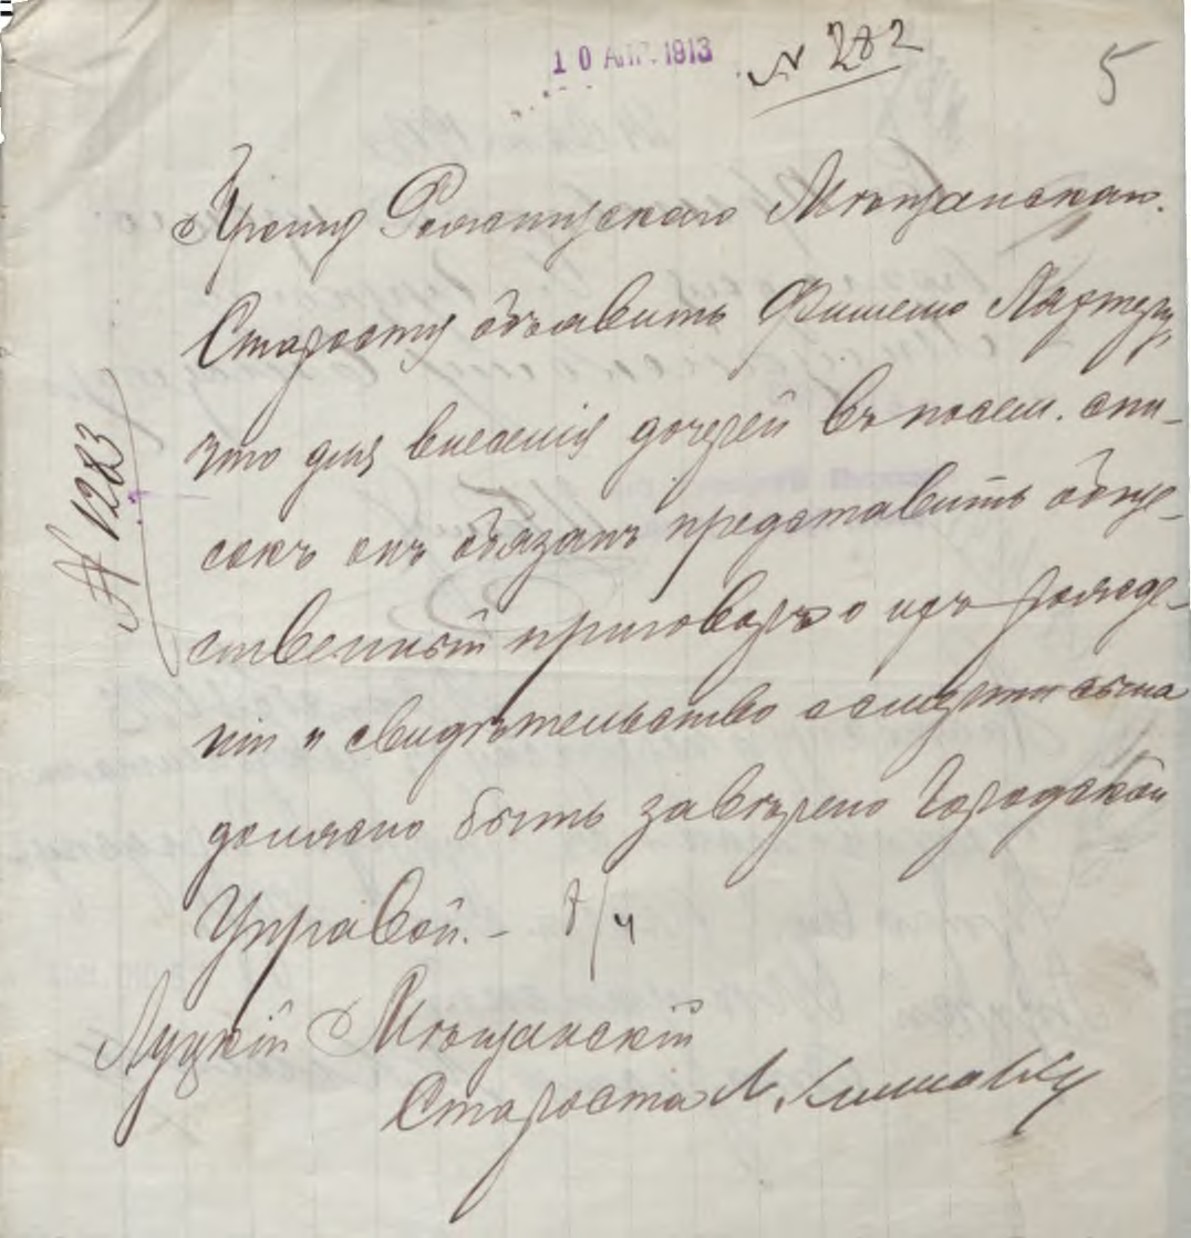 10 АПР. 1913
№ 282
5
Прошу Рожищского Мѣщанскаго
Старосту объявить Фишелю
что для внесенія дочерей въ посем. спи-
сокъ онъ обязанъ представить обще-
ственный приговоръ о ихъ рожде-
ніи и свидѣтельство о смерти сына
должно быть завѣрено Городской
Управой. –
Луцкій Мѣщанскій
Староста
№ 1283